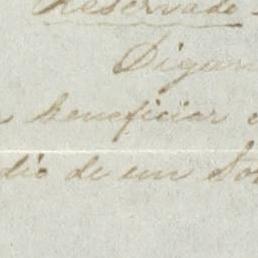 Reservado
Digan
beneficiar
dio de un